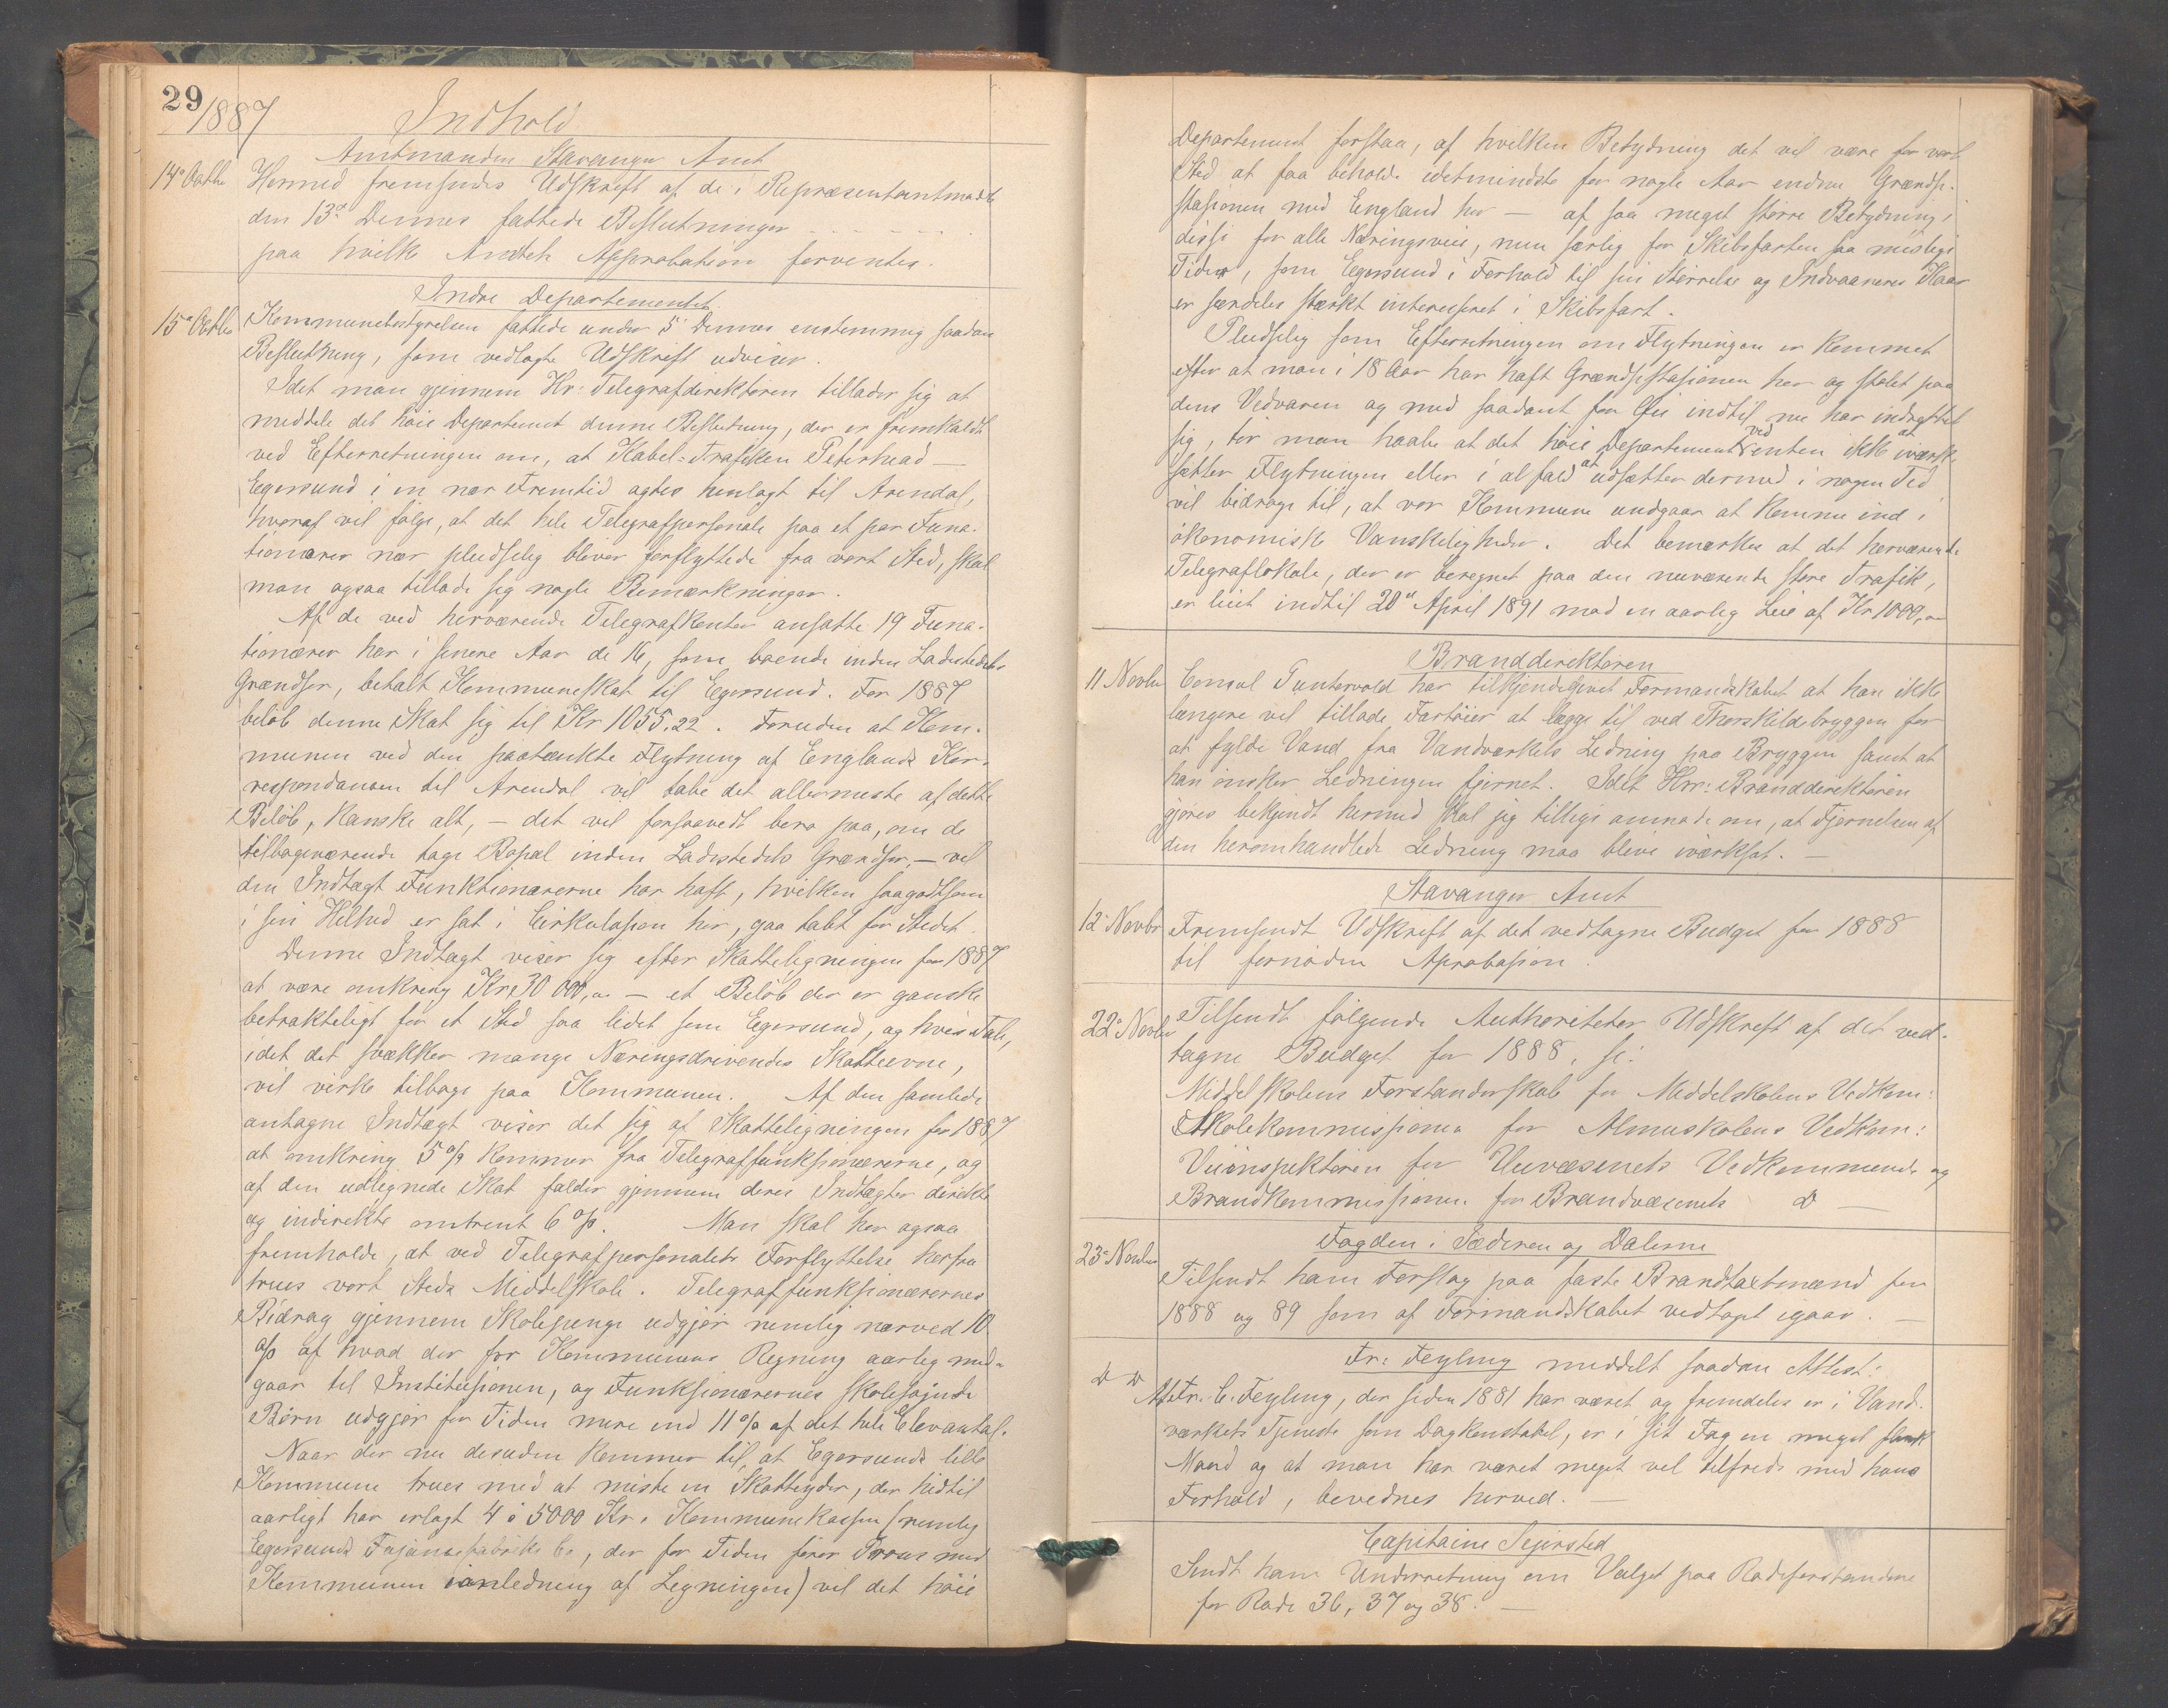 29
1887 Indhold
Amtmanden Stavanger Amt
14de Octbr Hermed fremsendes Udskrift af de i Repræsentantmøde
den 13de Dennes fattede Beslutninger . . . . . .
paa hvilke Amtets Approbation forventes.
Indre Departementet
15de Octbr Kommunebestyrelsen fattede under 5 Dennes enstemmig saadan
Beslutning, som vedlagte Udskrift udviser.
Idet man gjennem Hr: Telegrafdirektøren tillader sig at
meddele det høie Departement denne Beslutning, der er fremkaldt
ved Efterretningen om, at Kabel-Trafiken Peterhead —
Egersund i en nær Fremtid agtes henlagt til Arendal,
hvoraf vil følge, at det hele Telegrafpersonale paa et par Funk-
tionærer nær pludselig bliver forflyttede fra vort Sted, skal
man ogsaa tillade sig nogle Bemærkninger.
Af de ved herværende Telegrafkontor ansatte 19 Funk-
tionærer har i senere Aar de 16, som boende inden Ladestedets
Grændser, betalt Kommuneskat til Egersund. For 1887
beløb denne Skat sig til Kr 1055.22. Foruden at Kom-
munen ved den paatænkte Flytning af Englands Kor-
respondancen til Arendal vil tabe det allermeste af dette
Beløb, kanske alt, — det vil forsaavidt bero paa, om de
tilbageværende tage Bopæl inden Ladestedets Grændser, — vil
den Indtægt Funktionærerne har haft, hvilken saagodtsom
i sin Helhed er sat i Cirkulasjon her, gaa tabt for Stedet.
Denne Indtægt viser sig efter Skatteligningen for 1887
at være omkring Kr 30 000,00 — et Beløb der er ganske
betrakteligt for et Sted saa lidet som Egersund, og hvis Tab,
idet det svækker mange Næringsdrivendes Skatteevne,
vil virke tilbage paa Kommunen. Af den samlede
antagne Indtægt viser det sig af Skatteligningen for 1887
at omkring 5 % kommer fra Telegraffunksjonærerne, og
af den udlignede Skat falder gjennem deres Indtægter direkte
og indirekte omtrent 6 %. Man skal her ogsaa
fremholde, at ved Telegrafpersonalets Forflyttelse herfra
trues vort Steds Middelskole. Telegraffunksjonærernes
Bidrag gjennem Skolepenge udgjør nemlig nærved 10
% af hvad der for Kommunens Regning aarlig med-
gaar til Institusjonen, og Funksjonærernes skolesøgende
Børn udgjør for Tiden mere end 11 % af det hele Elevantal.
Naar der nu desuden kommer til, at Egersunds lille
Kommune trues med at miste en Skatteyder, der hidtil
aarligt har erlagt 4 à 5000 Kr. i Kommunekassen (nemlig
Egersunds Fajansefabriks Co, der for Tiden fører Proces med
Kommunen i anledning af Legningen) vil det høie
Departement forstaa, af hvilken Betydning det vil være for vort
Sted at faa beholde idetmindste for nogle Aar endnu Grændse-
stasjonen med England her — af saa meget større Betydning i
disse for alle Næringsveie, men særlig for Skibsfarten saa mislige
Tider, som Egersund i Forhold til sin Størrelse og Indvaaneres Kaar
er særdeles stærkt interesseret i Skibsfart.
Pludselig som Efterretningen om Flytningen er kommet
efter at man i 18 Aar har haft Grændsestasjonen her og stolet paa
dens Vedvaren og med saadant for Øie indtil nu har indrettet
sig, tør man haabe at det høie Departement ved enten ikke at iværk-
sætter Flytningen eller i al fald at udsætter dermed i nogen Tid
vil bidrage til, at vor Kommune undgaar at komme ind i
økonomiske Vanskeligheder. Det bemærkes at det herværende
Telegraflokale, der er beregnet paa den nuværende store Trafik,
er leiet indtil 20de April 1891 mod en aarlig Leie af Kr 1000,00
Branddirektøren
11 Novbr Consul Puntervold har tilkjendegivet Formandskabet at han ikke
længere vil tillade Fartøier at lægge til ved Thorskildbryggen for
at fylde Vand fra Vandværkets Ledning paa Bryggen samt at
han ønsker Ledningen fjernet. Idet Hrr: Branddirektøren
gjøres bekjendt hermed skal jeg tillige anmode om, at Fjernelsen af
den heromhandlede Ledning maa blive iværksat. —
Stavanger Amt
12 Novbr Fremsendt Udskrift af det vedtagne Budget for 1888
til fornøden Aprobasjon.
22 Novbr Tilsendt følgende Authoriteter Udskrift af det ved-
tagne Budget for 1888, se:
Middelskolens Forstanderskab for Middelskolens Vedkom:
Skolekommissionen for Almuskolens Vedkom:
Veiinspektøren for Veivæsenets Vedkommende og
Brandkommissionen for Brandvæsenets do —
Fogden i Jæderen og Dalerne
23 Novbr Tilsendt ham Forslag paa faste Brandtaxtmænd for
1888 og 89 som af Formandskabet vedtaget igaar. —
Fr: Feyling meddelt saadan Attest:
do do At Fr. C. Feyling, der siden 1881 har været og fremdeles er i Vand-
værkets Tjeneste som Dagkonstabel, er i sit Fag en meget flink
Mand og at man har været meget vel tilfreds med hans
Forhold, bevidnes herved. —
Capitaine Sejersted
Sendt ham Underretning om Valget paa Rodeforstandere
for Rode 36, 37 og 38. —